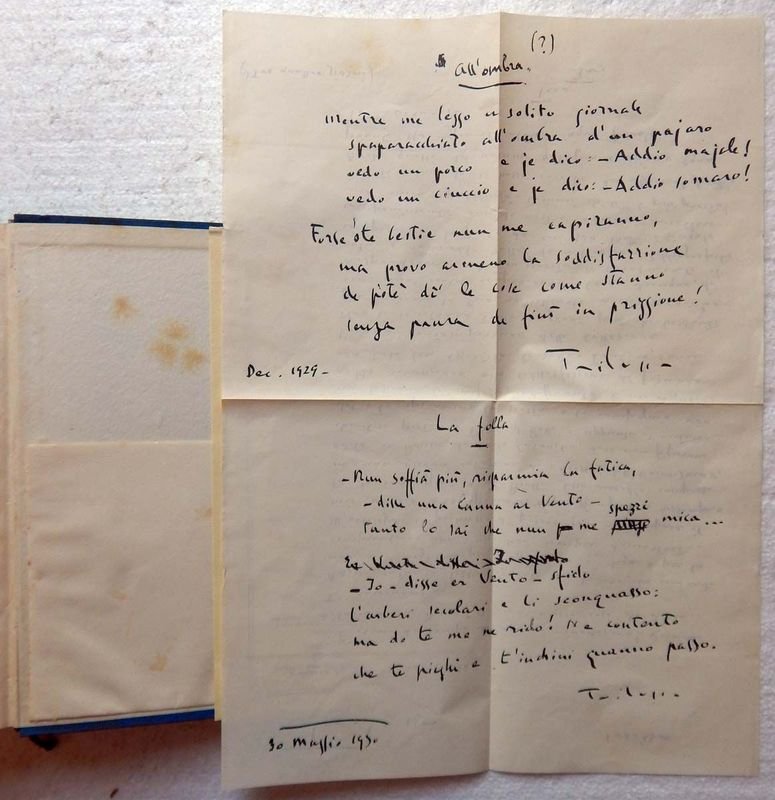 (?)
All'ombra.
mentre me leggo er solito giornale
spaparacchiato all'ombra d'un pajaro
vedo un porco e je dico: - Addio majale!
vedo un ciuccio e je dico: - Addio somaro!
Forse 'ste bestie nun me capiranno,
ma provo armeno la soddisfazzione
de potè dì le cose come stanno
senza paura de finì in priggione!
Trilussa
Dec. 1929 -
La folla
- Nun soffià più, risparmia la fatica,
- disse una Canna ar Vento -
spezzi
tanto lo sai che nun me mica...
- Io - disse er Vento - sfido
l'arberi secolari e li sconquasso:
ma de te me ne rido! M'è contento
che te pieghi e t'inchini quanno passo.
Trilussa
30 Maggio 1930